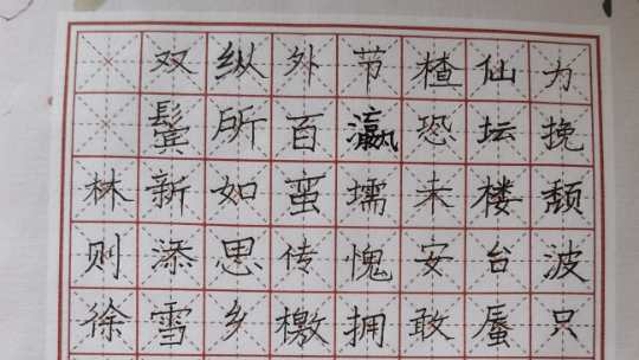 力挽颓波只
仙坛楼台蜃
楂恐未安敢
节瀛壖愧拥
外百蛮传檄
纵所如思乡
双鬓新添雪
林则徐